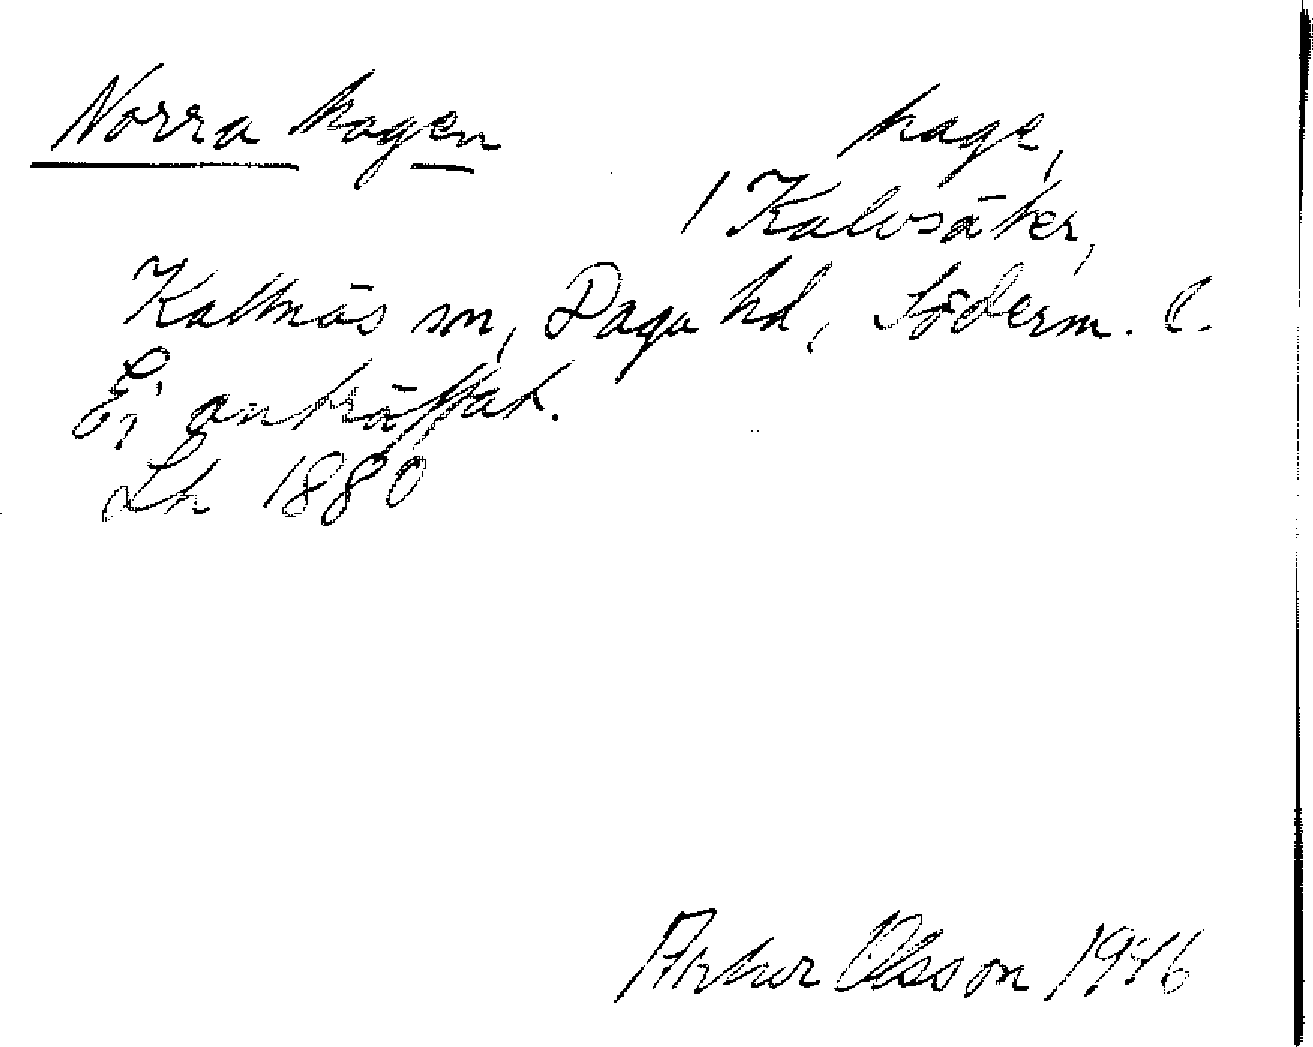 Norra hagen hage,
1 Kalvsäter,
Kattnäs sn, Daga hd, Söderm. l.
Ej anträffat.
Lh 1880
Artur Olsson 1946